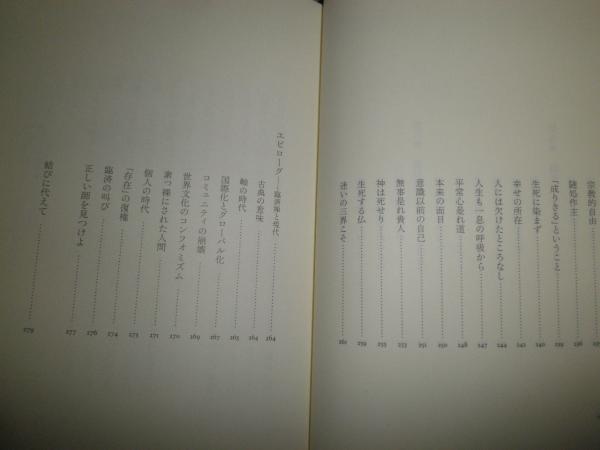 宗教的自由
随処作主……139
「成りきる」ということ……139
生死に染まず……140
幸せの所在……142
人には欠けたところなし……144
人生も一息の呼吸から……147
平常心是れ道……148
本来の面目……150
意識以前の自己……151
無事是れ貴人……153
神は死せり……155
生死する仏……159
迷いの三界こそ……161
エピローグ——臨済禅と現代……164
古典の意味……164
軸の時代……165
国際化とグローバル化……167
コミュニティの崩壊……169
世界文化のコンフォミズム……170
素っ裸にされた人間……171
個人の時代……173
「存在」の復権……174
臨済の叫び……176
正しい師を見つけよ……177
結びに代えて……179